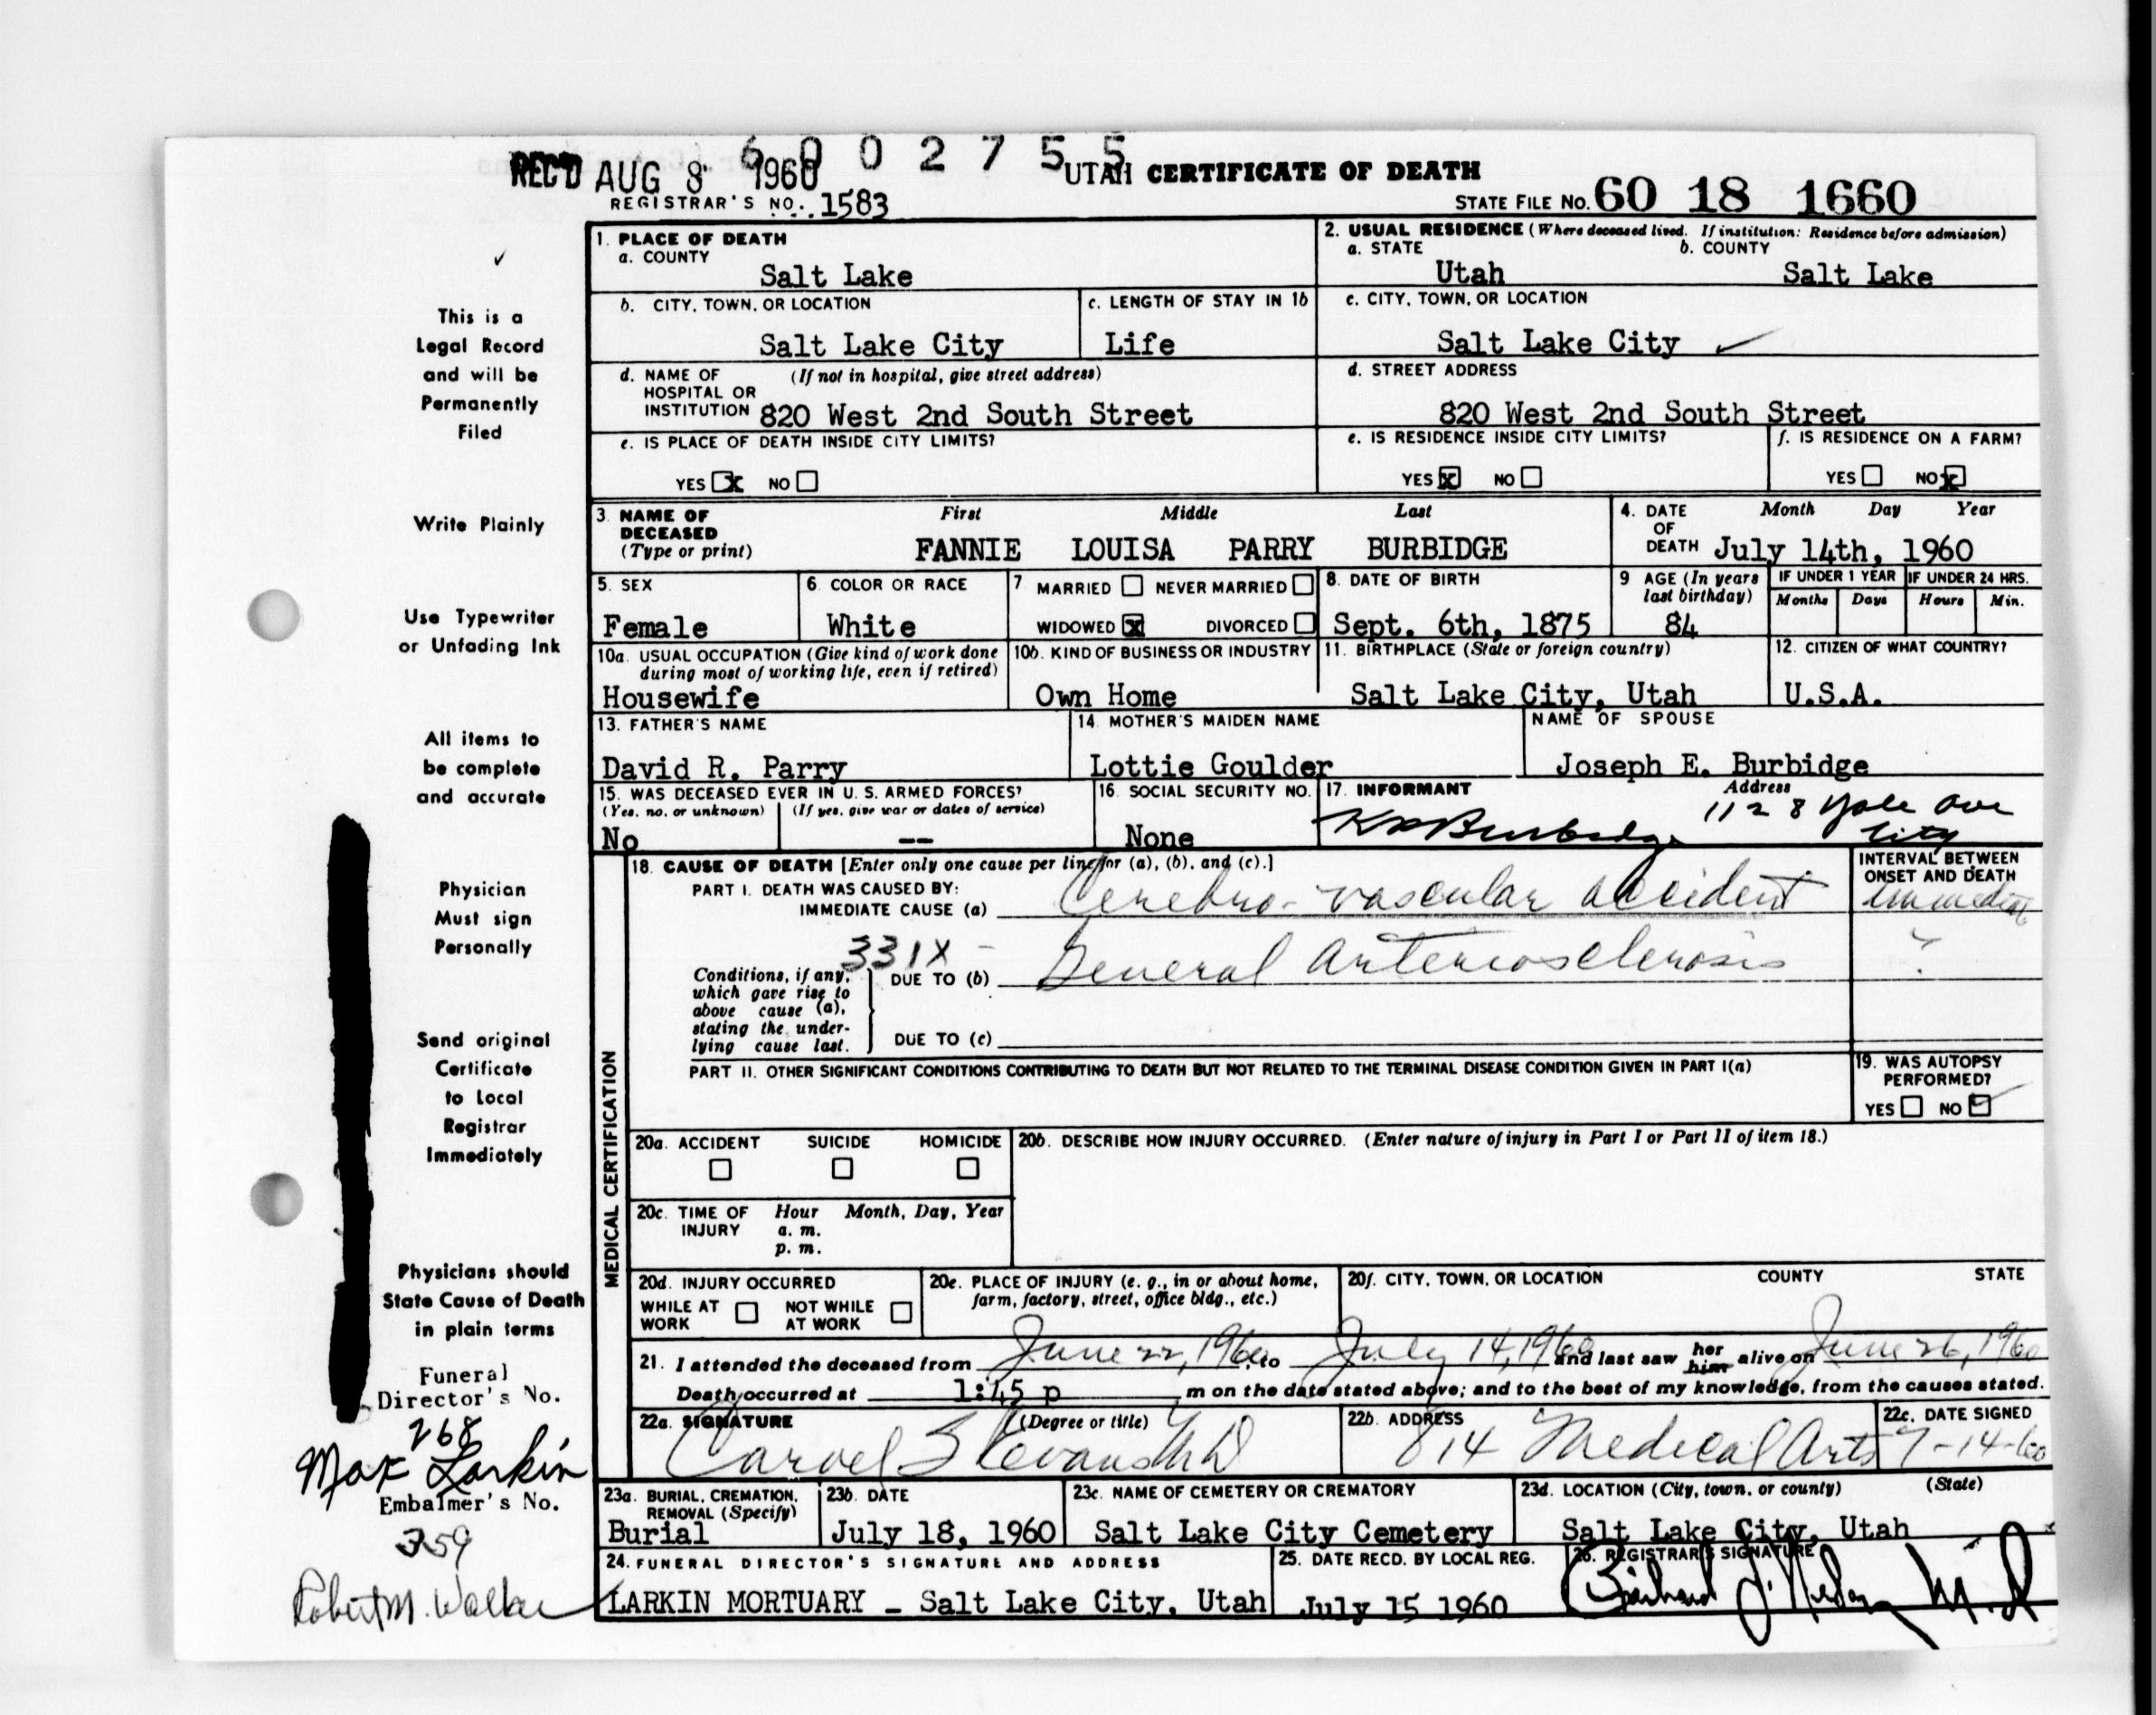 6 0 0 2 7 5 5
REC'D AUG 8 1960
UTAH CERTIFICATE OF DEATH
REGISTRAR'S NO. 1583
STATE FILE NO. 60 18 1660
1. PLACE OF DEATH
a. COUNTY
Salt Lake
2. USUAL RESIDENCE (Where deceased lived. If institution: Residence before admission)
a. STATE b. COUNTY
Utah Salt Lake
b. CITY, TOWN, OR LOCATION
Salt Lake City
c. LENGTH OF STAY IN 1b
Life
c. CITY, TOWN, OR LOCATION
Salt Lake City
d. NAME OF (If not in hospital, give street address)
HOSPITAL OR
INSTITUTION 820 West 2nd South Street
d. STREET ADDRESS
820 West 2nd South Street
e. IS PLACE OF DEATH INSIDE CITY LIMITS?
YES x NO
e. IS RESIDENCE INSIDE CITY LIMITS?
YES x NO
f. IS RESIDENCE ON A FARM?
YES NO x
3. NAME OF DECEASED (Type or print)
First Middle Last
FANNIE LOUISA PARRY BURBIDGE
4. DATE OF DEATH
Month Day Year
July 14th, 1960
5. SEX
Female
6. COLOR OR RACE
White
7 MARRIED NEVER MARRIED
WIDOWED x DIVORCED
8. DATE OF BIRTH
Sept. 6th, 1875
9 AGE (In years last birthday)
84
IF UNDER 1 YEAR IF UNDER 24 HRS.
Months Days Hours Min.
10a. USUAL OCCUPATION (Give kind of work done
during most of working life, even if retired)
Housewife
10b. KIND OF BUSINESS OR INDUSTRY
Own Home
11. BIRTHPLACE (State or foreign country)
Salt Lake City, Utah
12. CITIZEN OF WHAT COUNTRY?
U.S.A.
13. FATHER'S NAME
David R. Parry
14. MOTHER'S MAIDEN NAME
Lottie Goulder
NAME OF SPOUSE
Joseph E. Burbidge
15. WAS DECEASED EVER IN U. S. ARMED FORCES?
(Yes, no, or unknown) (If yes, give war or dates of service)
No --
16. SOCIAL SECURITY NO.
None
17. INFORMANT Address
Burbidge 1128 Yale Ave
City
MEDICAL CERTIFICATION
18. CAUSE OF DEATH [Enter only one cause per line for (a), (b), and (c).]
INTERVAL BETWEEN
ONSET AND DEATH
PART I. DEATH WAS CAUSED BY:
IMMEDIATE CAUSE (a) Cerebro-vascular accident immediate
331X -
Conditions, if any,
which gave rise to
above cause (a),
stating the under-
lying cause last.
DUE TO (b) General Arteriosclerosis ?
DUE TO (c)
PART II. OTHER SIGNIFICANT CONDITIONS CONTRIBUTING TO DEATH BUT NOT RELATED TO THE TERMINAL DISEASE CONDITION GIVEN IN PART I(a)
19. WAS AUTOPSY
PERFORMED?
YES NO ✓
20a. ACCIDENT SUICIDE HOMICIDE
20b. DESCRIBE HOW INJURY OCCURRED. (Enter nature of injury in Part I or Part II of item 18.)
20c. TIME OF INJURY
Hour Month, Day, Year
a. m.
p. m.
20d. INJURY OCCURRED
WHILE AT WORK NOT WHILE AT WORK
20e. PLACE OF INJURY (e. g., in or about home,
farm, factory, street, office bldg., etc.)
20f. CITY, TOWN, OR LOCATION COUNTY STATE
21. I attended the deceased from June 22, 1960 to July 14, 1960 and last saw her him alive on June 26, 1960
Death occurred at 1:45 p m on the date stated above; and to the best of my knowledge, from the causes stated.
22a. SIGNATURE (Degree or title)
22b. ADDRESS
814 Medical Arts
22c. DATE SIGNED
7-14-60
23a. BURIAL, CREMATION,
REMOVAL (Specify)
Burial
23b. DATE
July 18, 1960
23c. NAME OF CEMETERY OR CREMATORY
Salt Lake City Cemetery
23d. LOCATION (City, town, or county) (State)
Salt Lake City, Utah
24. FUNERAL DIRECTOR'S SIGNATURE AND ADDRESS
LARKIN MORTUARY - Salt Lake City, Utah
25. DATE RECD. BY LOCAL REG.
July 15 1960
26. REGISTRAR'S SIGNATURE
✓
This is a
Legal Record
and will be
Permanently
Filed
Write Plainly
Use Typewriter
or Unfading Ink
All items to
be complete
and accurate
Physician
Must sign
Personally
Send original
Certificate
to Local
Registrar
Immediately
Physicians should
State Cause of Death
in plain terms
Funeral
Director's No.
268
Max Larkin
Embalmer's No.
359
Robert M. Walker